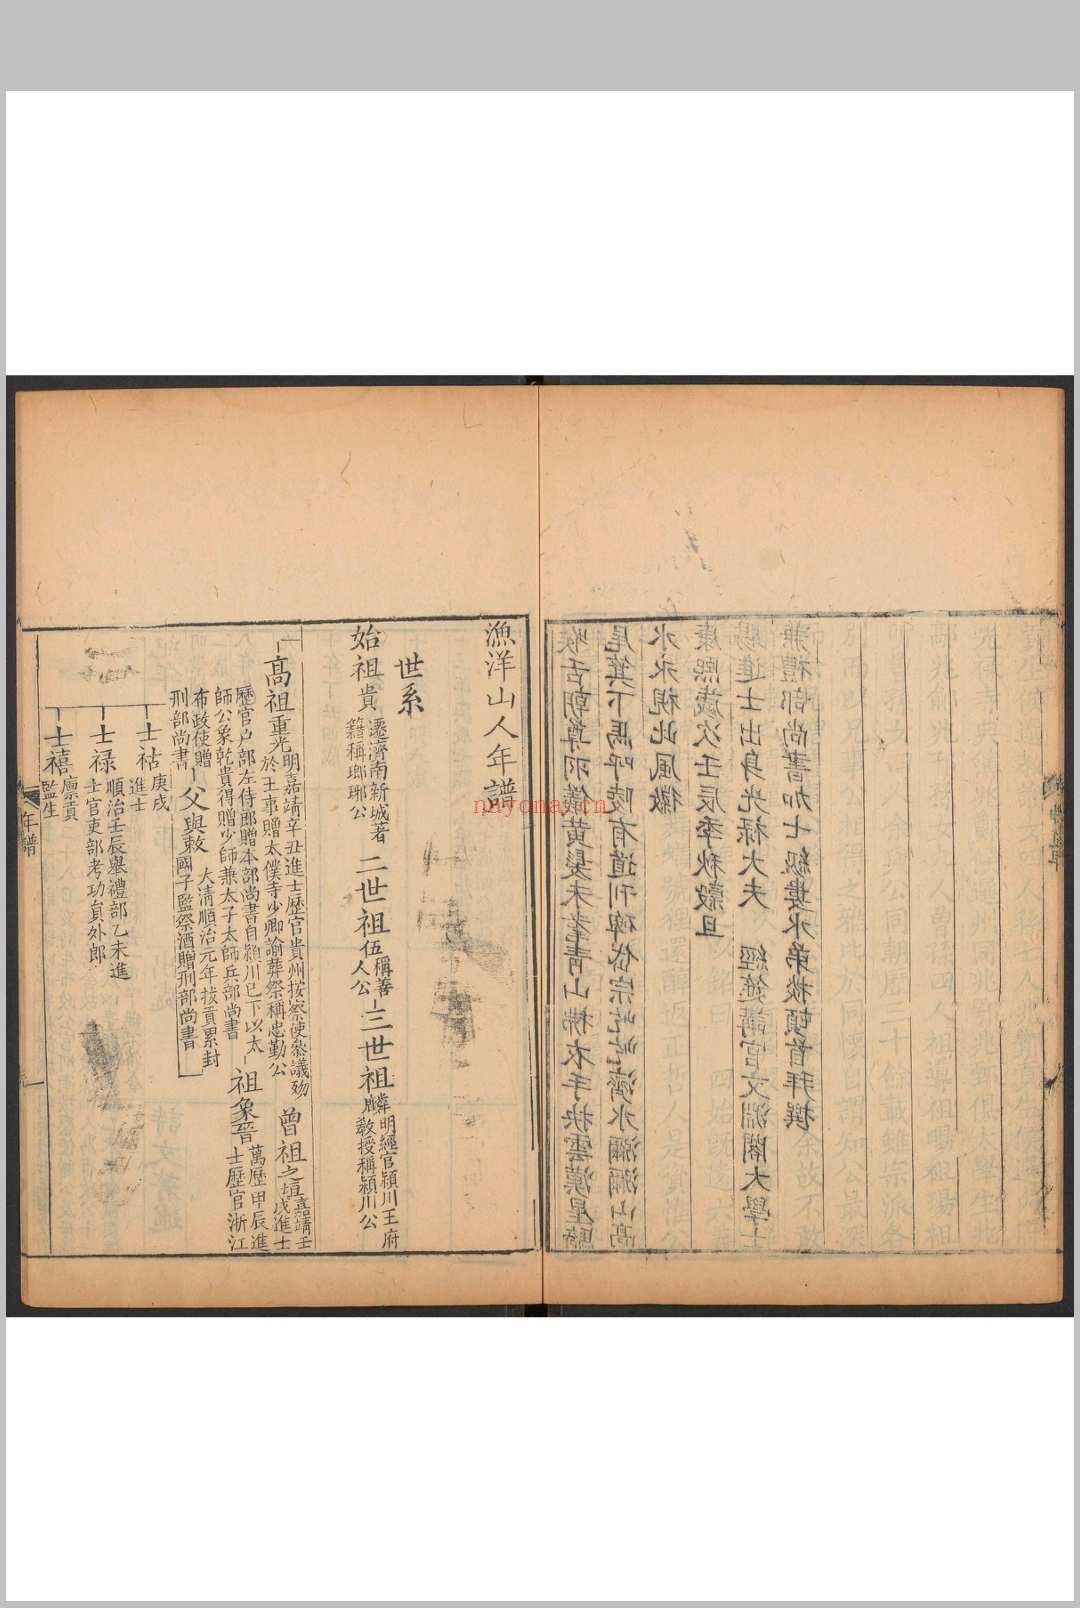 喉舌朝尊羽儀黃髮未耄青山拂衣手抉雲漢星騎
尾箕下馬呼陵有道刊碑岱宗屹屹濟水瀰瀰山高
水永視此風徽
康熙歲次壬辰季秋穀旦
賜進士出身光祿大夫 經筵講官文淵閣大學士
兼禮部尚書加七級婁水弟掞頓首拜撰
漁洋山人年譜
世系
始祖貴
遷濟南新城著
籍稱瑯琊公
二世祖伍
稱善
人公
三世祖麟
明經官潁川王府
教授稱潁川公
高祖重光
明嘉靖辛丑進士歷官貴州按察使叅議歿
於王事贈太僕寺少卿諭葬祭稱忠勤公
曾祖之垣
嘉靖壬
戌進士
歷官户部左侍郎贈本部尚書自潁川已下以太
師公象乾貴得贈少師兼太子太師兵部尚書
祖象晉
萬歷甲辰進
士歷官浙江
布政使贈
刑部尚書
父與敕
大清順治元年拔貢累封
國子監祭酒贈刑部尚書
士祜
庚戌
進士
士禄
順治壬辰舉禮部乙未進
士官吏部考功貟外郎
士禧
廪貢
監生
年譜
nayona.cn